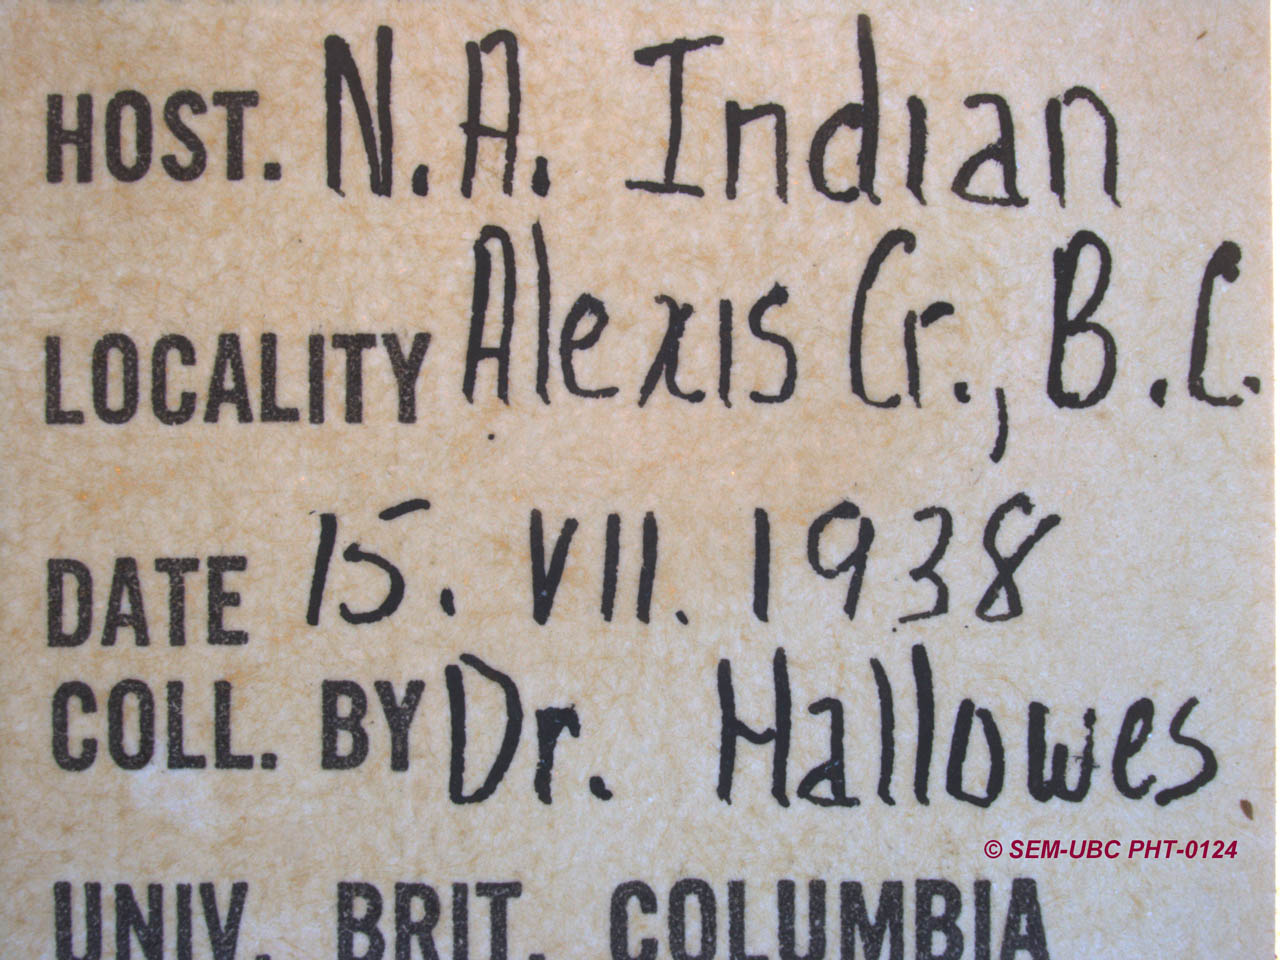 HOST. N.A. Indian
LOCALITY Alexis Cr., B.C.
DATE 15. VII. 1938
COLL. BY Dr. Hallowes
© SEM-UBC PHT-0124
UNIV. BRIT. COLUMBIA